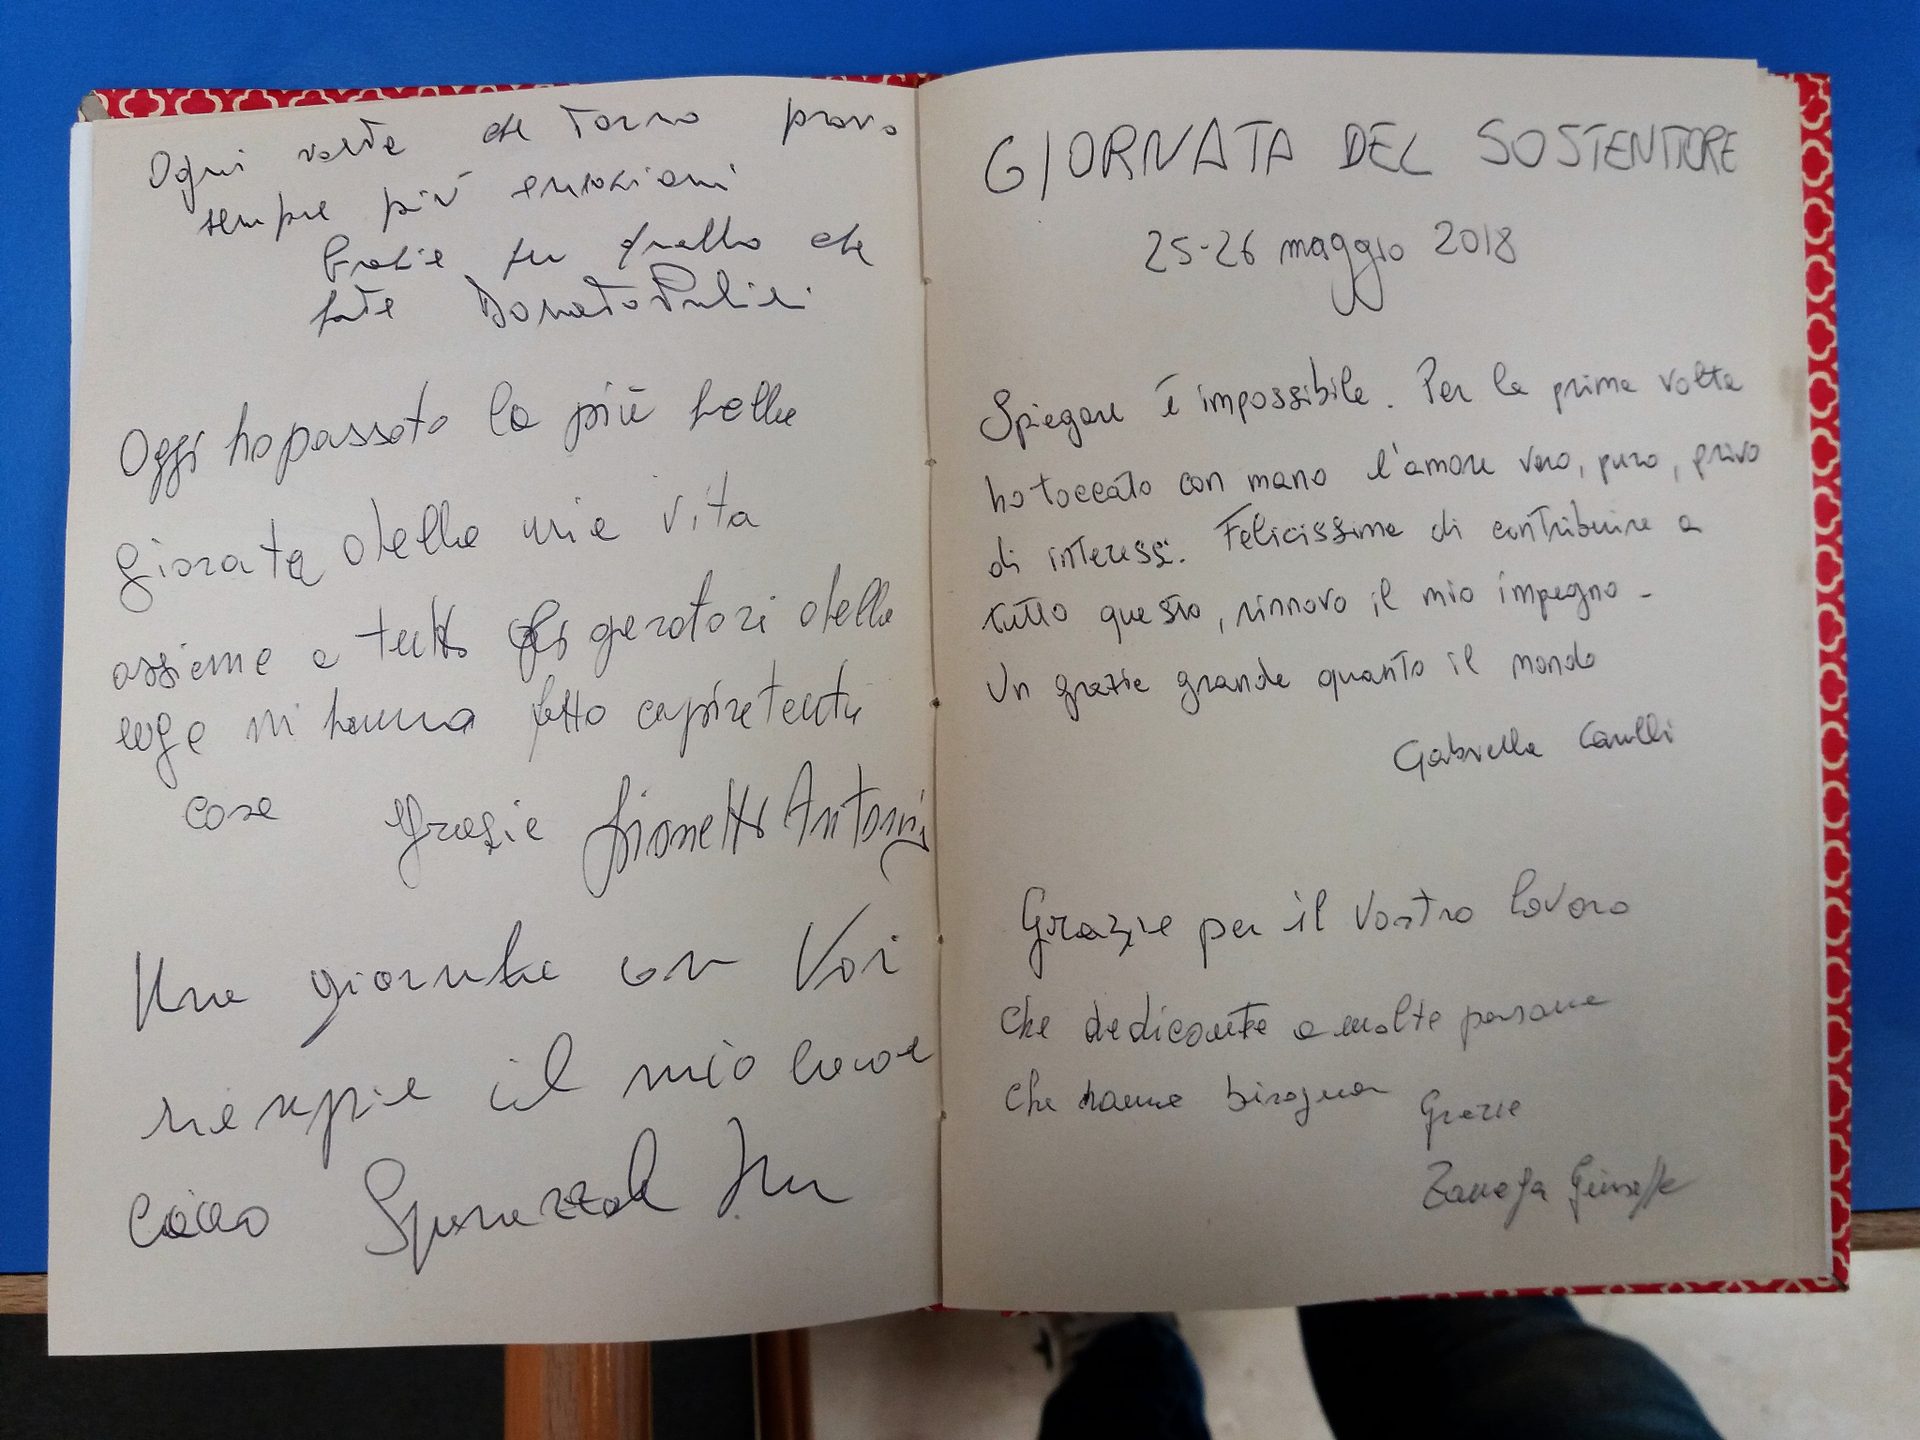 Ogni volta che torno provo
sempre più emozioni
Grazie per quello che
fate Donato
Oggi ho passato la più bella
giorata della mia vita
assieme a tutti gli geratori della
lega mi hanno fatto capire tente
cose Grazie Antonio
Una giornata con Voi
riempie il mio cuore
ciao
GIORNATA DEL SOSTENITORE
25-26 maggio 2018
Spiegare è impossibile. Per la prima volta
ho toccato con mano l'amore vero, puro, privo
di interessi. Felicissima di contribuire a
tutto questo, rinnovo il mio impegno -
Un grazie grande quanto il mondo
Gabriella Carulli
Grazie per il vostro lavoro
che dedicate a molte persone
che hanno bisogno
Grazie
Giuseppe